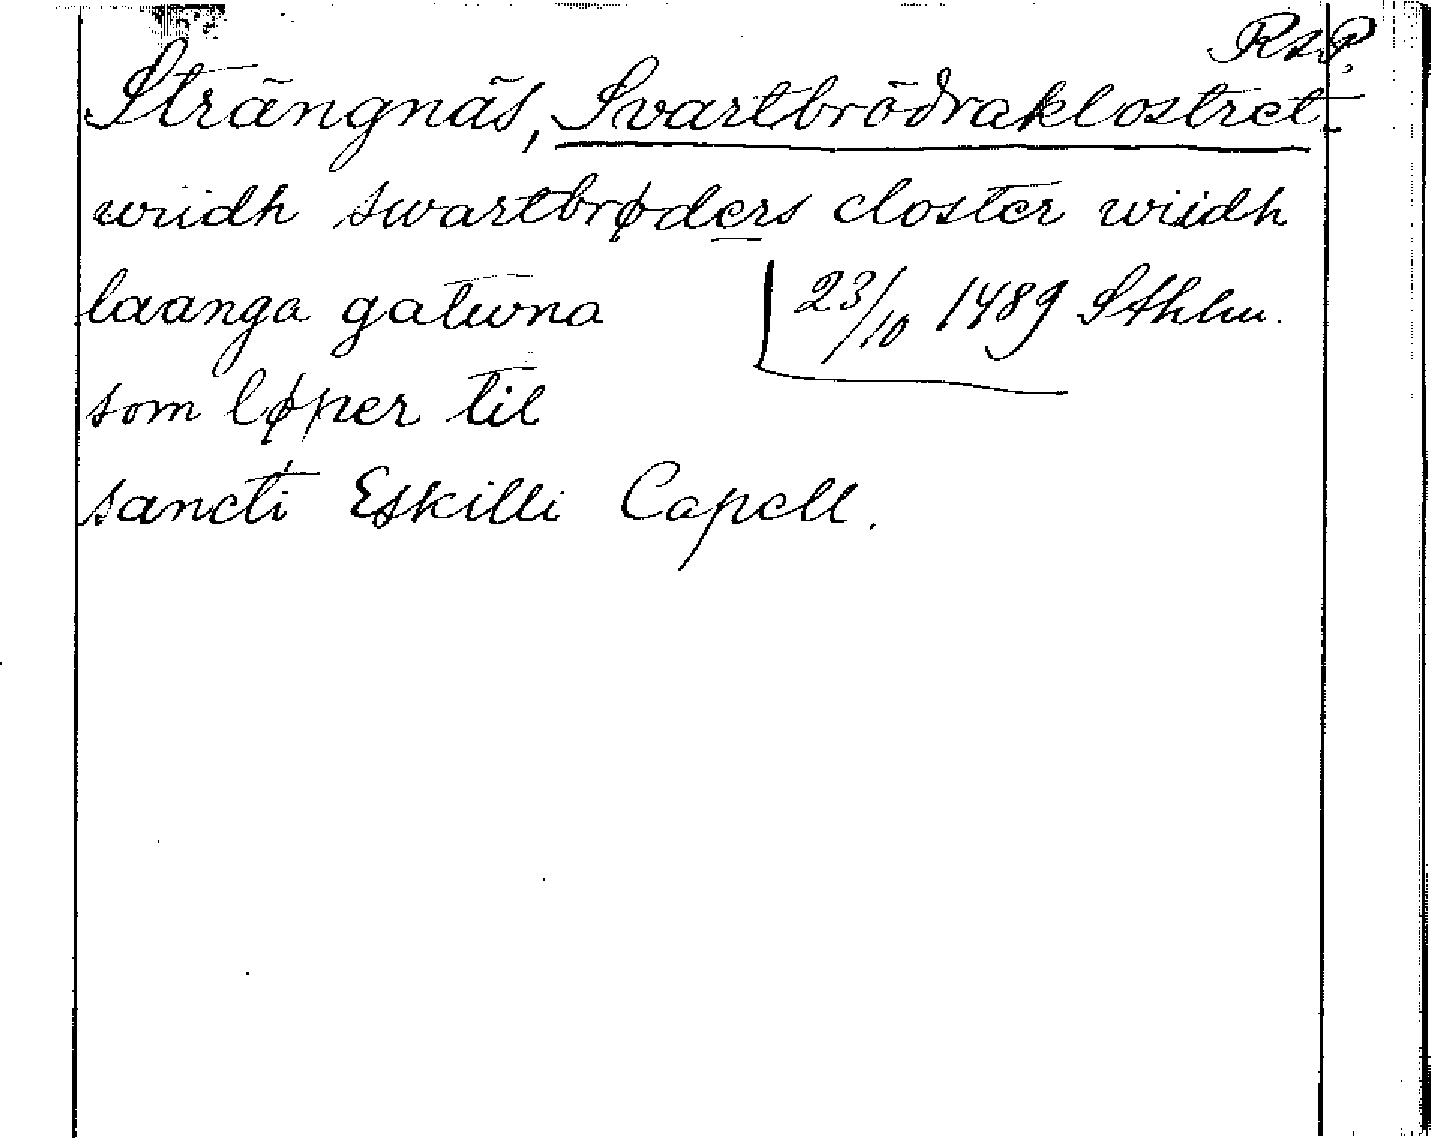 RAP.
Strängnäs, Svartbrödraklostret
wiidh swartbrøders closter wiidh
laanga gatuna
23/10 1489 Sthlm.
som løper til
sancti Eskilli Capell.